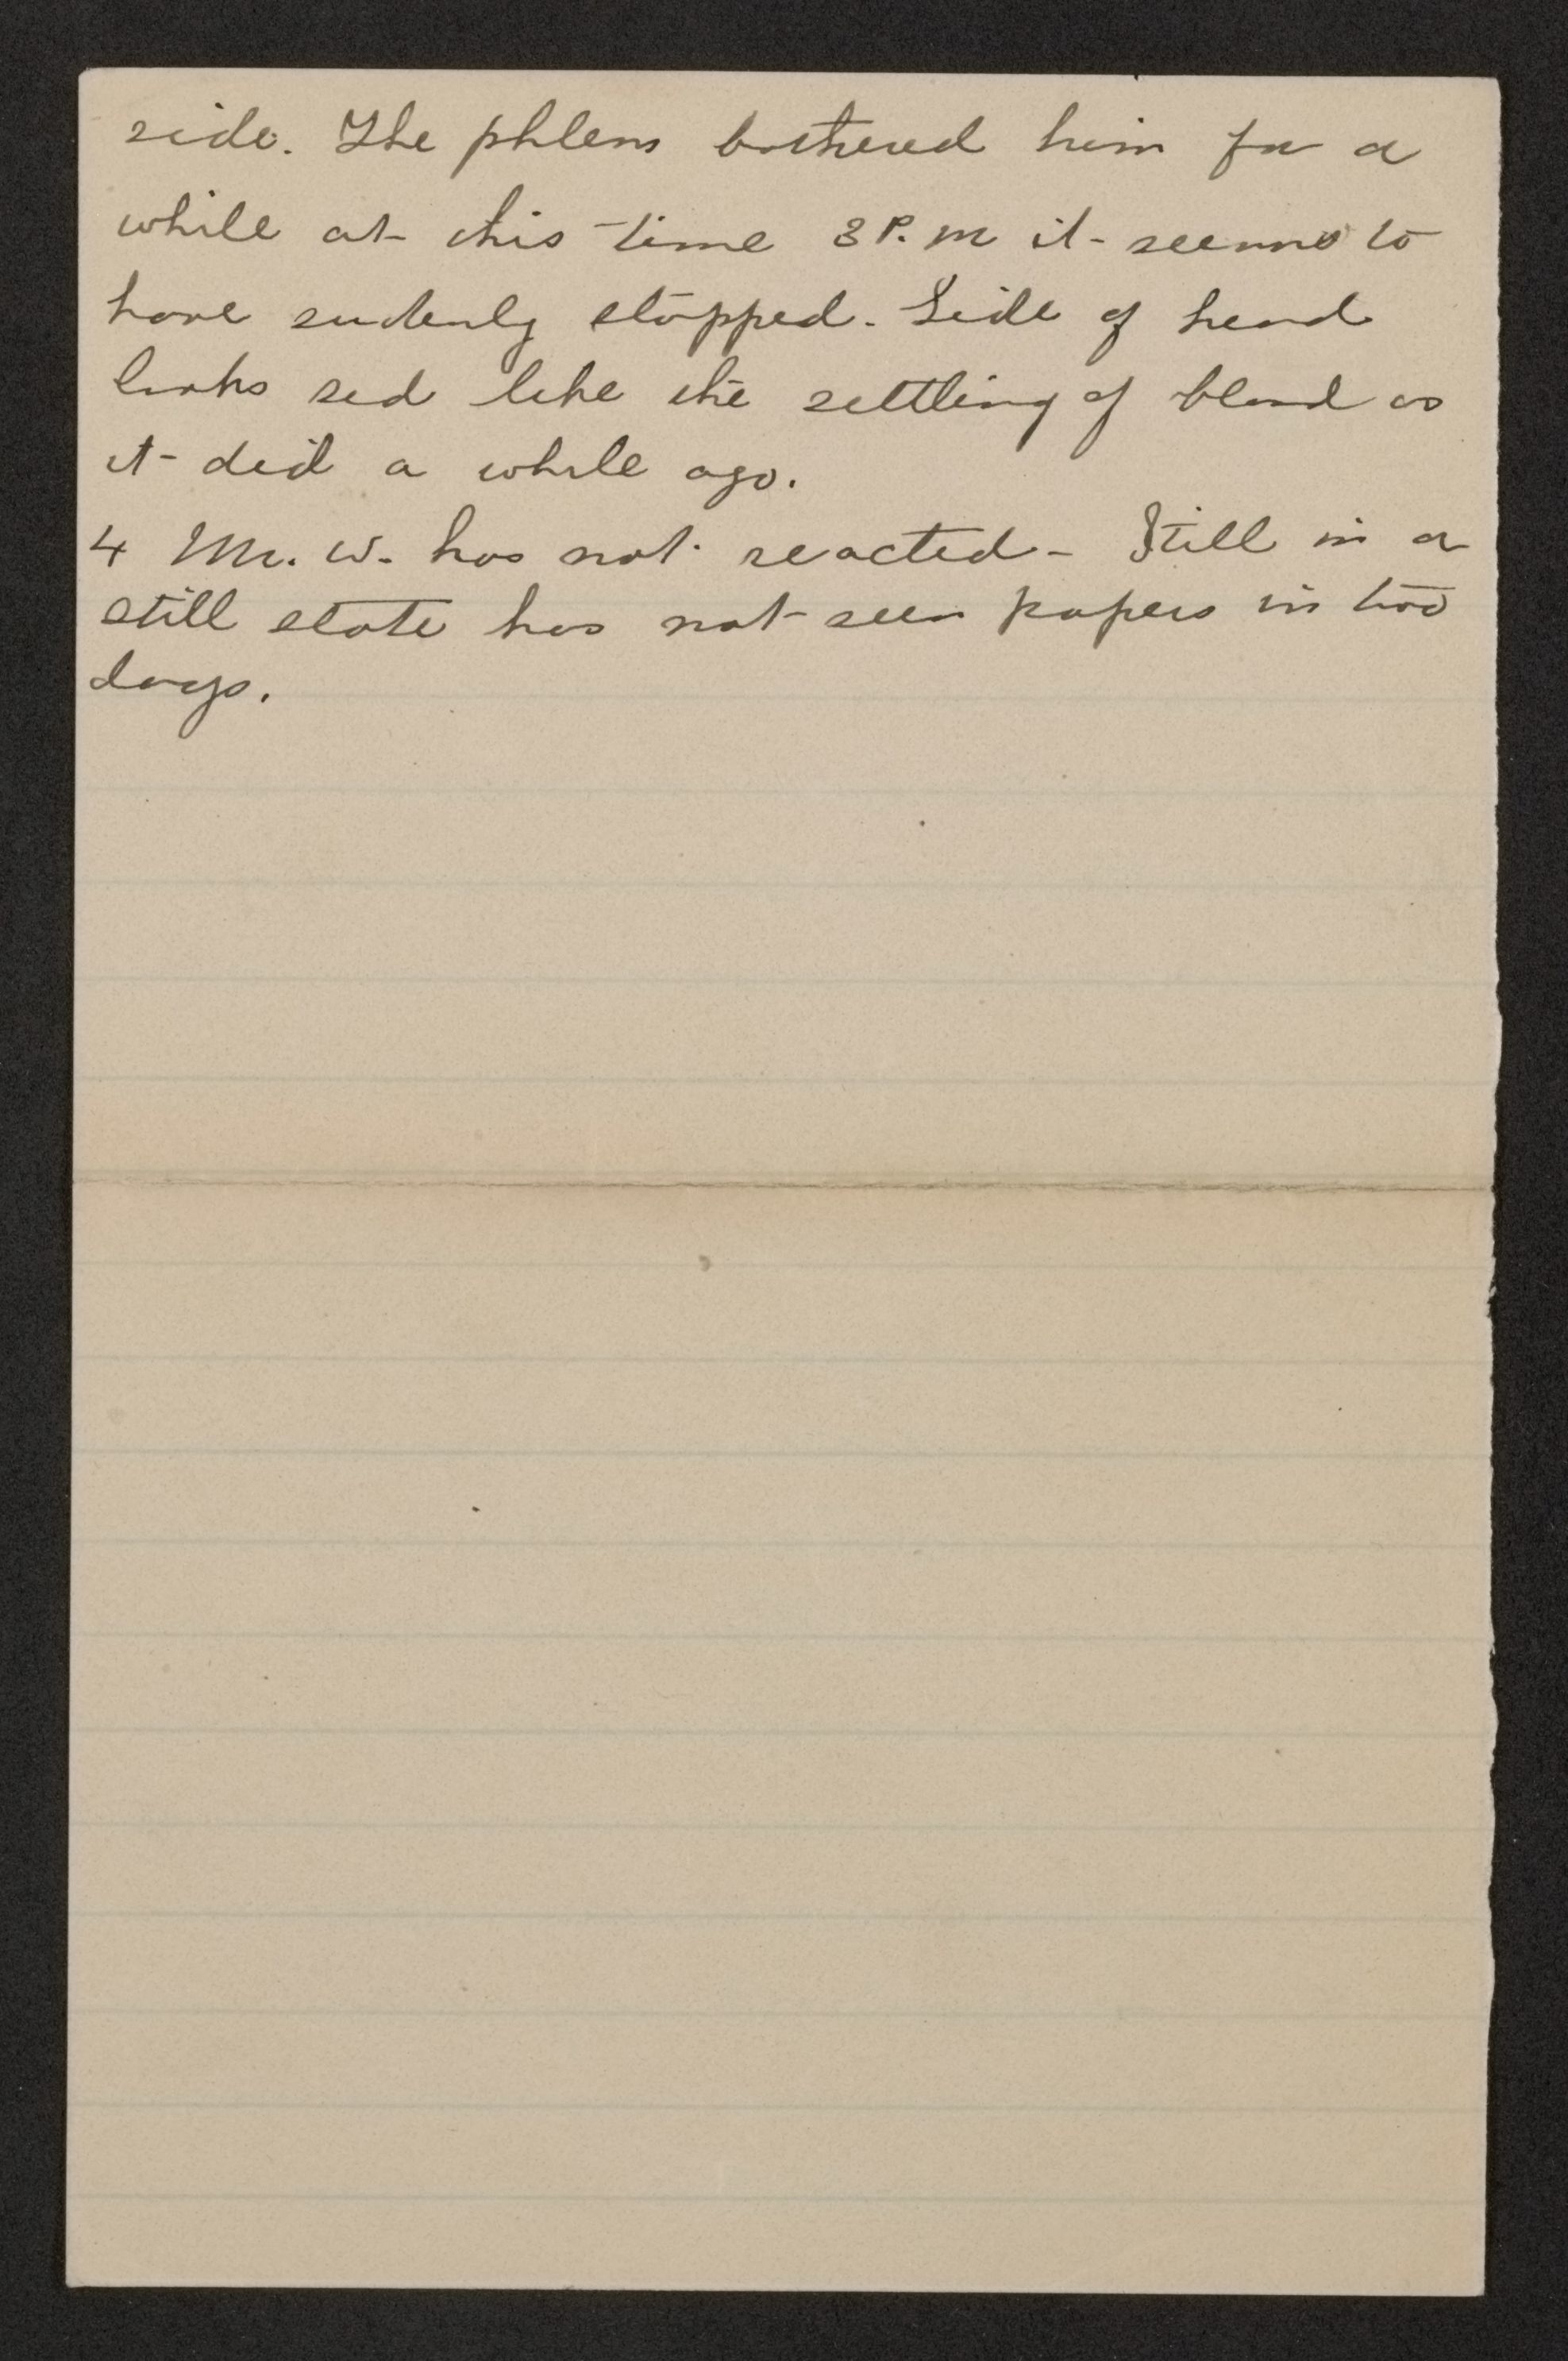 side. The phlem bothered him for a
while at this time 3 P.M it seems to
have sudenly stopped. Side of head
looks red like the settling of blood as
it did a while ago.
4 Mr. W. has not reacted - Still in a
still state has not seen papers in two
days.